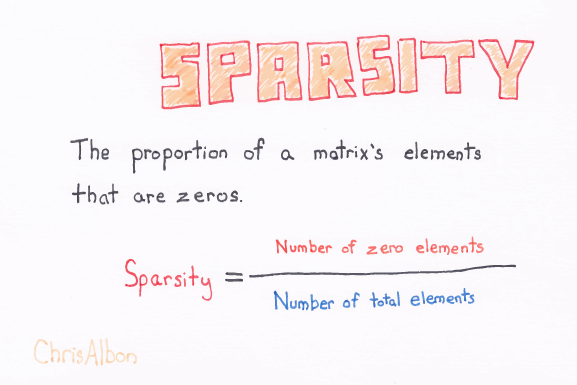 SPARSITY
The proportion of a matrix's elements
that are zeros.
Number of zero elements
Sparsity =
Number of total elements
ChrisAlbon